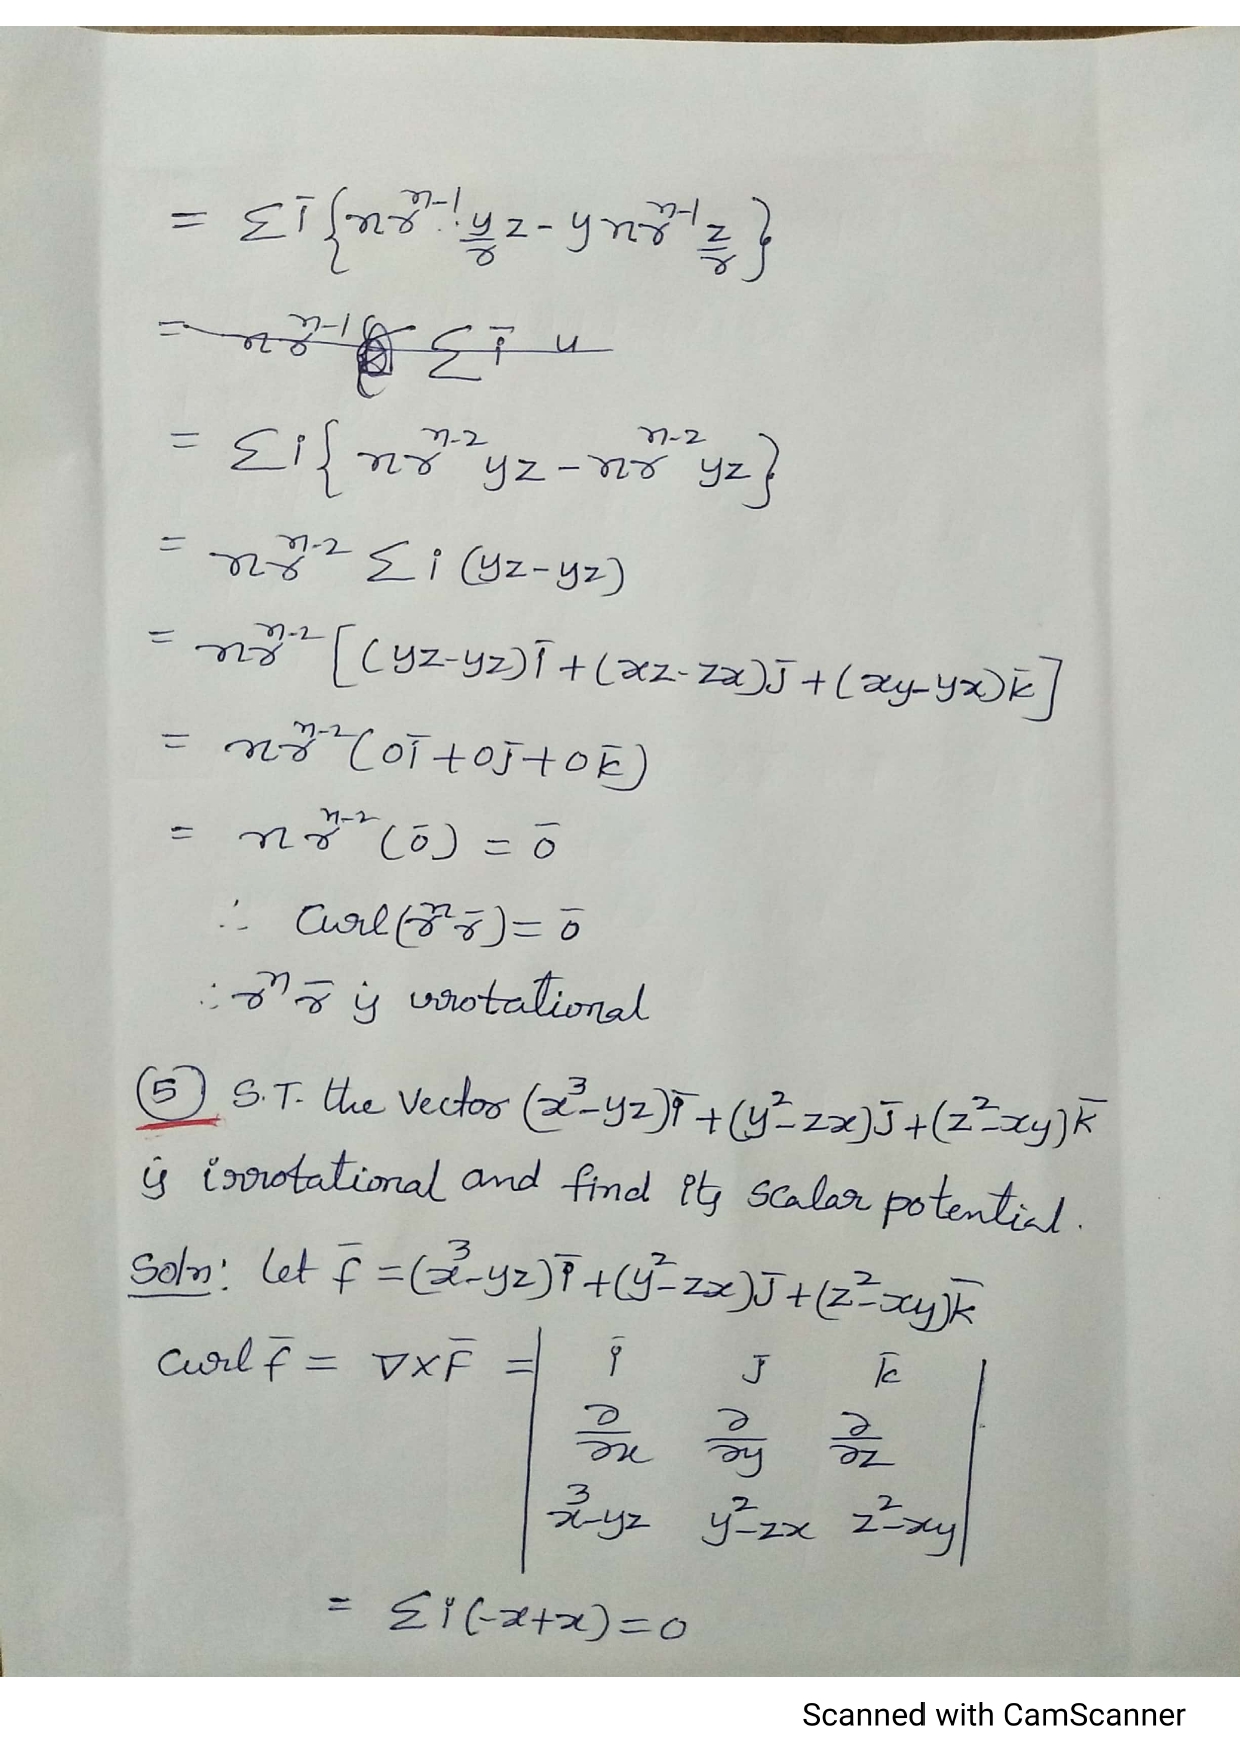 = Σ ī { n r^{n-1} · y/r z - y n r^{n-1} z/r }
= n r^{n-1} Σ ī
= Σ i { n r^{n-2} yz - n r^{n-2} yz }
= n r^{n-2} Σ i (yz-yz)
= n r^{n-2} [ (yz-yz) ī + (xz-zx) j̄ + (xy-yx) k̄ ]
= n r^{n-2} (0ī + 0j̄ + 0k̄)
= n r^{n-2} (ō) = ō
∴ Curl (r^n r̄) = ō
∴ r^n r̄ is irrotational
(5) S.T. the vector (x³-yz)ī + (y²-zx)j̄ + (z²-xy)k̄
is irrotational and find its scalar potential.
Soln: Let f̄ = (x³-yz)ī + (y²-zx)j̄ + (z²-xy)k̄
Curl f̄ = ∇×F̄ = | ī j̄ k̄ |
∂/∂x ∂/∂y ∂/∂z
x³-yz y²-zx z²-xy
= Σ i (-x+x) = 0
Scanned with CamScanner